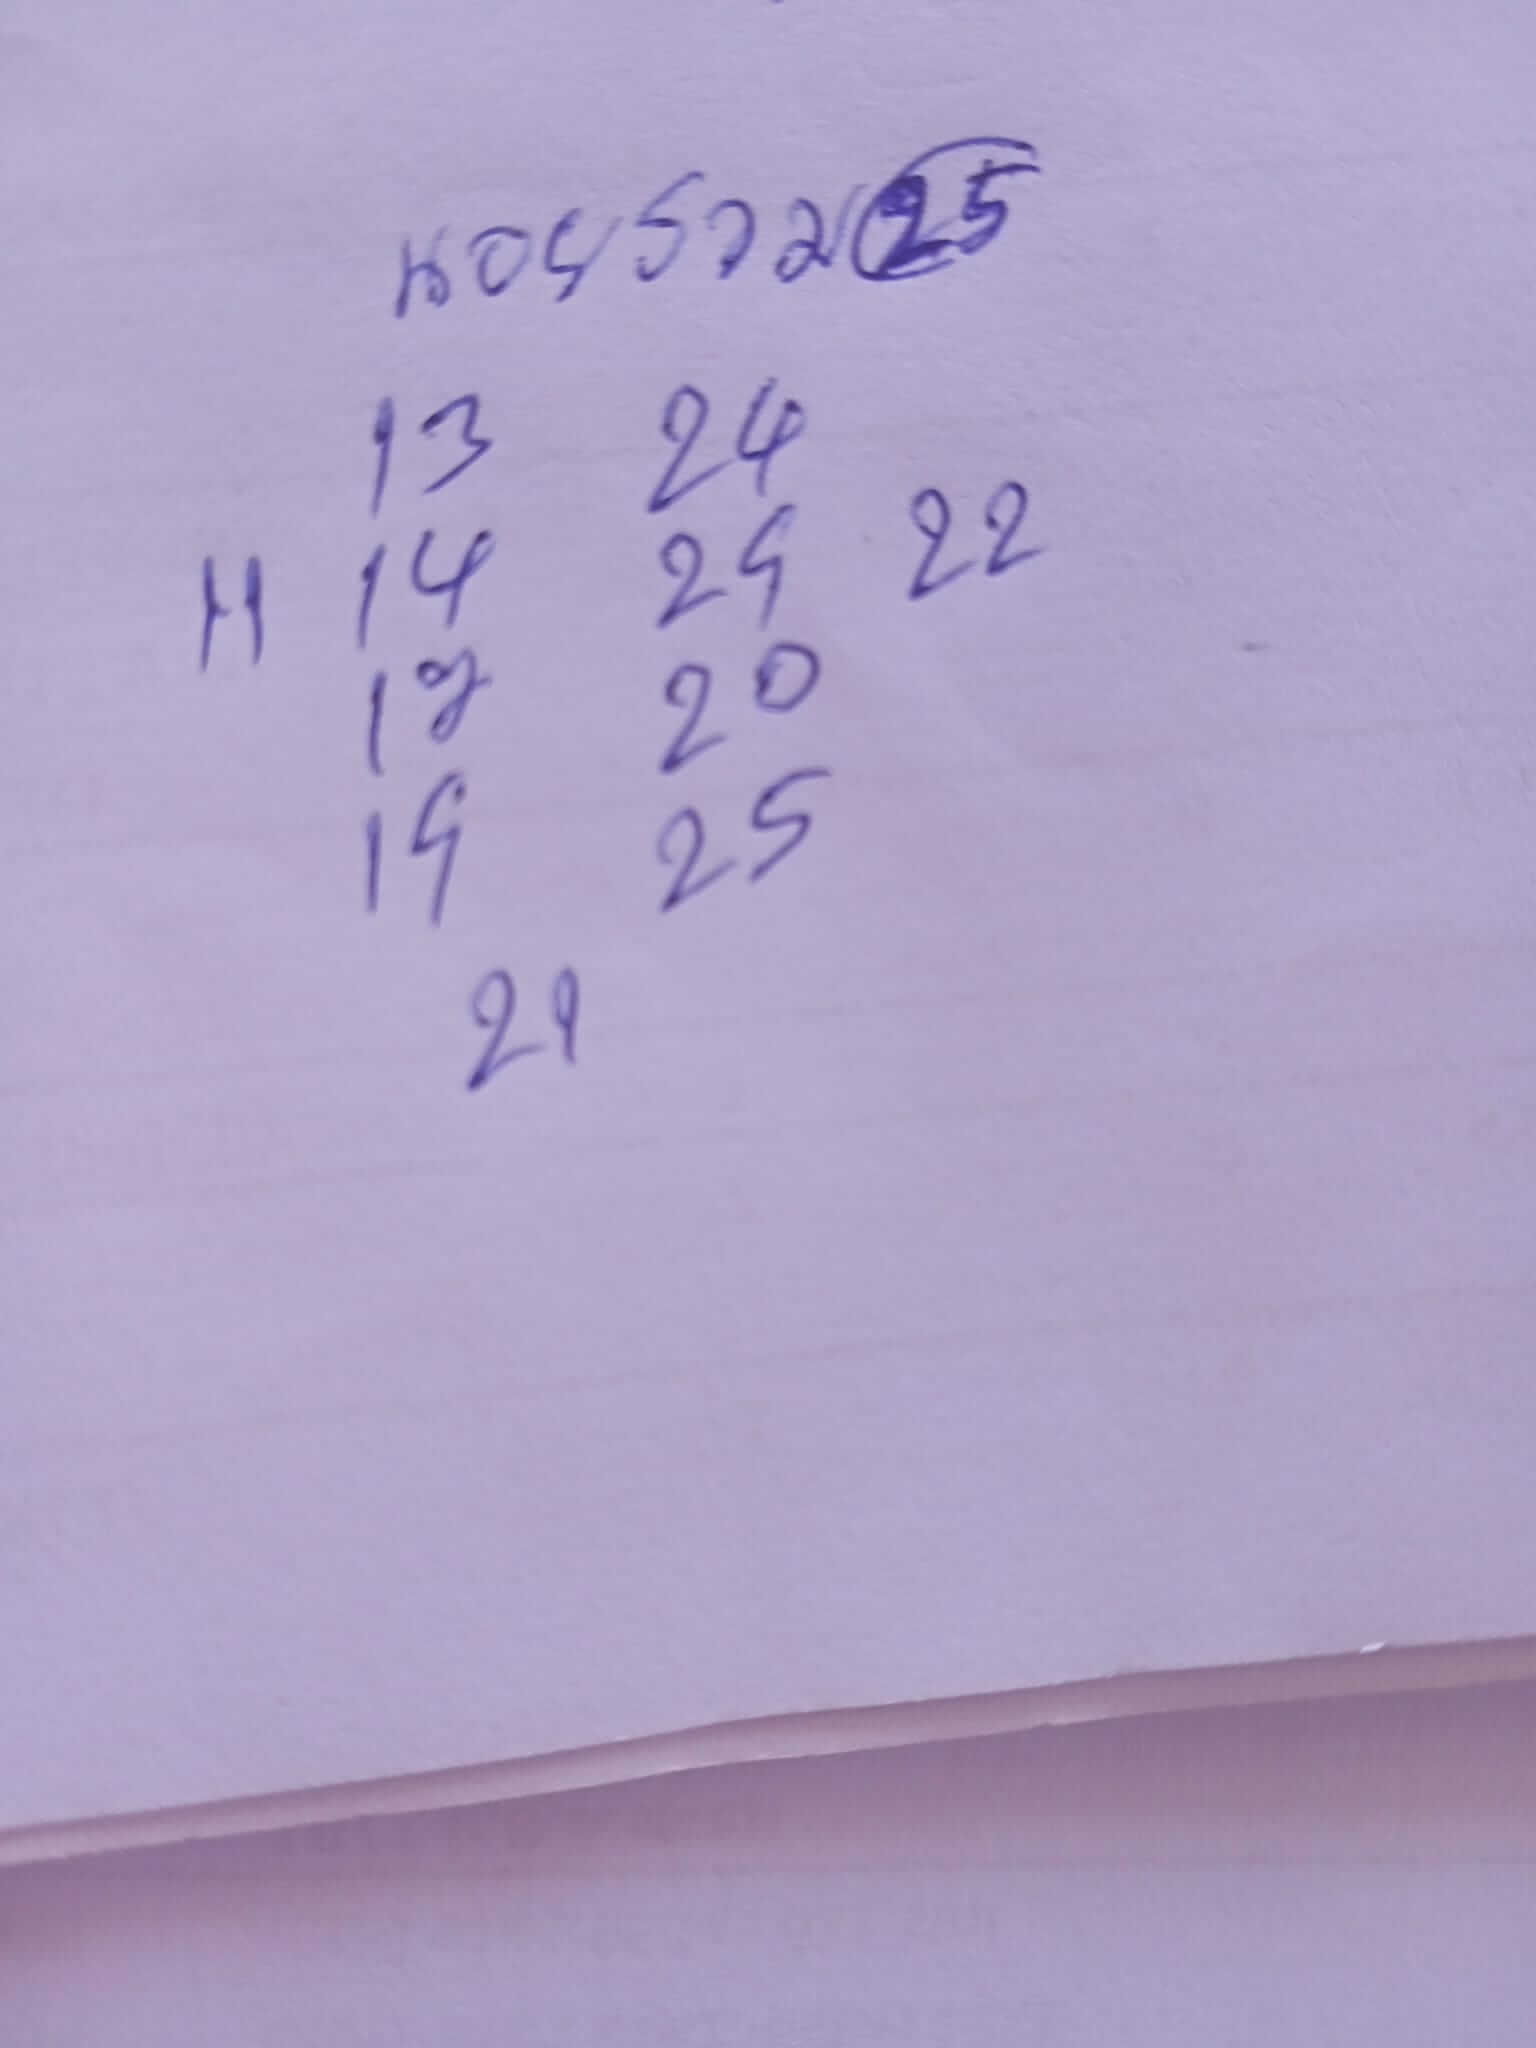 หอยรวม 25
13 24
H 14 29 22
18 20
19 25
21